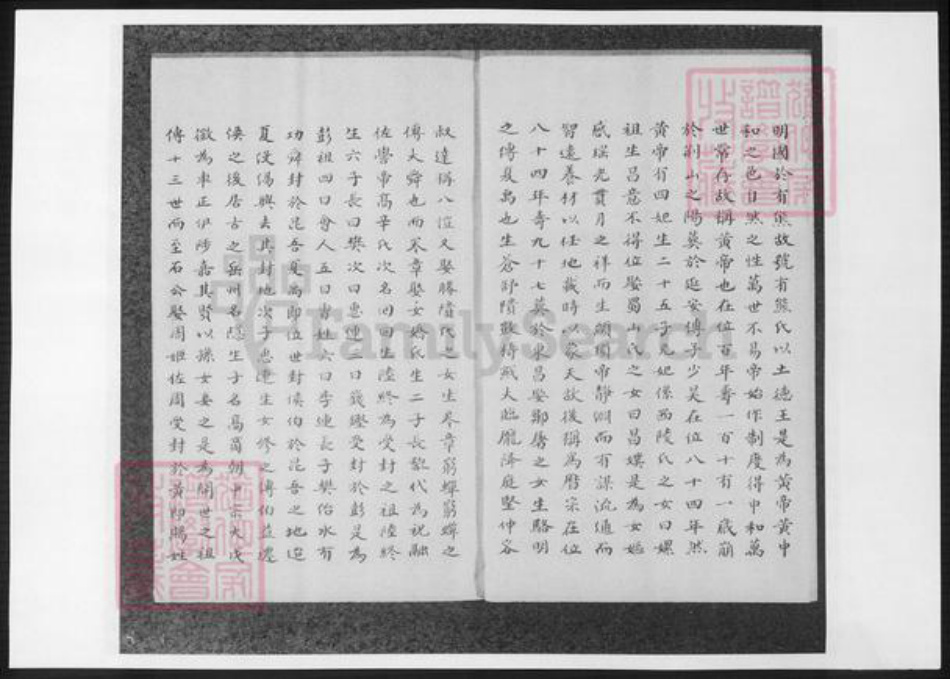 明國於有熊故號有熊氏以土德王是為黃帝黃中
和之色自然之性萬世不易帝始作制度得中和萬
世常存故稱黃帝也在位百年壽一百十有一歲崩
於荊山之陽葬於延安傳子少昊在位八十四年然
黃帝有四妃生二十五子元妃係西陵氏之女曰嫘
祖生昌意不得位娶蜀山氏之女曰昌嫘是為女姤
感瑤光貫月之祥而生顓頊帝靜淵而有謀流通而
智遠養材以任地載時以象天故後稱為曆宗在位
八十四年壽九十七葬於東昌娶鄒屠之女生駱明
之傳夏禹也生蒼舒隤敱梼戭大臨龎降庭堅仲容
叔達稱八愷又娶滕隤氏之女生卷章窮蟬窮蟬之
傳大舜也而卷章娶女嬌氏生二子長黎代為祝融
佐嚳帝高辛氏次名囘囘生陸終為受封之祖陸終
生六子長曰樊次曰惠連三曰籛鏗受封於彭是為
彭祖四曰會人五曰曹姓六曰季連長子樊佐水有
功舜封於昆吾夏禹即位世封侯伯於昆吾之地迨
夏浸傷興去其封地次子惠連生女修之傳伯益遷
侯之後居古之名隱生子名高朝中宗大戊
徵為車正伊陟嘉其賢以孫女妻之是為開世之祖
傳十三世而至石公娶周姬佐周受封於黃即賜姓
FamilySearch